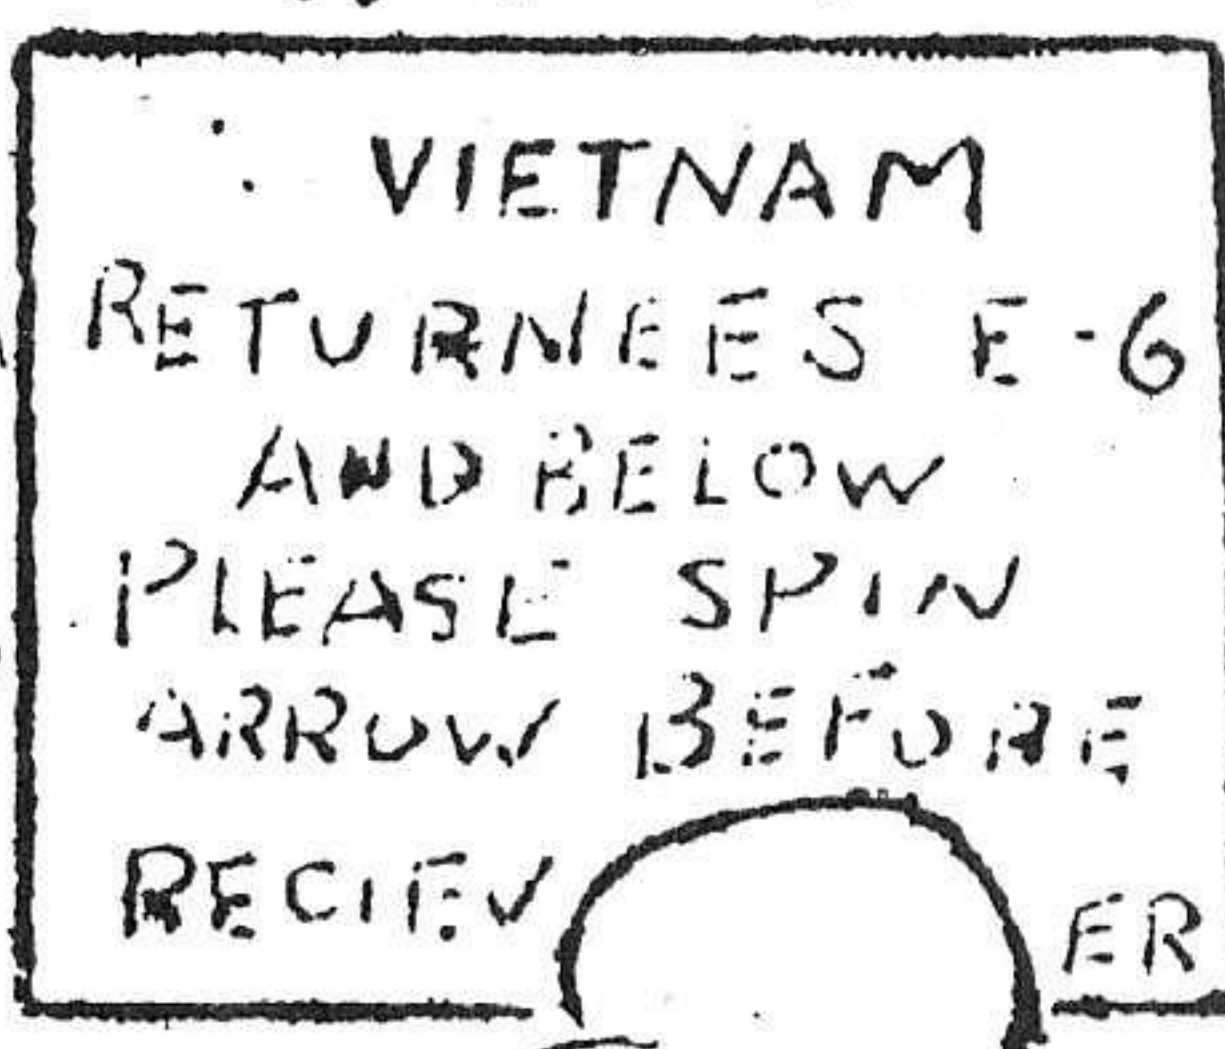 VIETNAM
RETURNEES E-6
AND BELOW
PLEASE SPIN
ARROW BEFORE
RECIEV ER